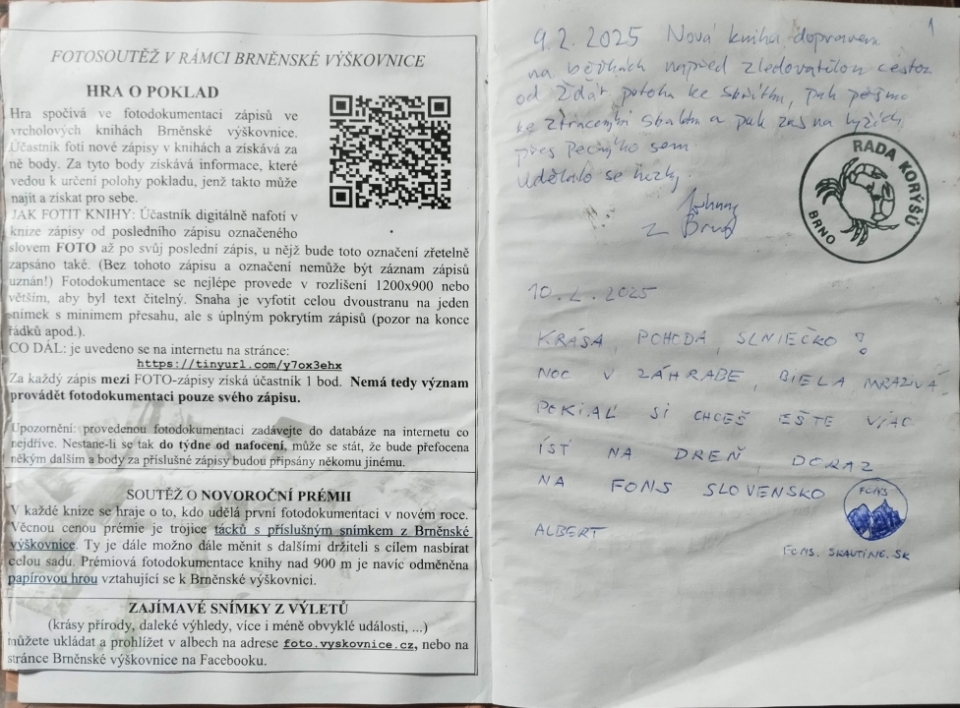 FOTOSOUTĚŽ V RÁMCI BRNĚNSKÉ VÝŠKOVNICE
HRA O POKLAD
Hra spočívá ve fotodokumentaci zápisů ve
vrcholových knihách Brněnské výškovnice.
Účastník fotí nové zápisy v knihách a získává za
ně body. Za tyto body získává informace, které
vedou k určení polohy pokladu, jenž takto může
najít a získat pro sebe.
JAK FOTIT KNIHY: Účastník digitálně nafotí v
knize zápisy od posledního zápisu označeného
slovem FOTO až po svůj poslední zápis, u nějž bude toto označení zřetelně
zapsáno také. (Bez tohoto zápisu a označení nemůže být záznam zápisů
uznán!) Fotodokumentace se nejlépe provede v rozlišení 1200x900 nebo
větším, aby byl text čitelný. Snaha je vyfotit celou dvoustranu na jeden
snímek s minimem přesahu, ale s úplným pokrytím zápisů (pozor na konce
řádků apod.).
CO DÁL: je uvedeno se na internetu na stránce:
https://tinyurl.com/y7ox3ehx
Za každý zápis mezi FOTO-zápisy získá účastník 1 bod. Nemá tedy význam
provádět fotodokumentaci pouze svého zápisu.
Upozornění: provedenou fotodokumentaci zadávejte do databáze na internetu co
nejdříve. Nestane-li se tak do týdne od nafocení, může se stát, že bude přefocena
někým dalším a body za příslušné zápisy budou připsány někomu jinému.
SOUTĚŽ O NOVOROČNÍ PRÉMII
V každé knize se hraje o to, kdo udělá první fotodokumentaci v novém roce.
Věcnou cenou prémie je trojice tácků s příslušným snímkem z Brněnské
výškovnice. Ty je dále možno dále měnit s dalšími držiteli s cílem nasbírat
celou sadu. Prémiová fotodokumentace knihy nad 900 m je navíc odměněna
papírovou hrou vztahující se k Brněnské výškovnici.
ZAJÍMAVÉ SNÍMKY Z VÝLETŮ
(krásy přírody, daleké výhledy, více i méně obvyklé události, ...)
můžete ukládat a prohlížet v albech na adrese foto.vyskovnice.cz, nebo na
stránce Brněnské výškovnice na Facebooku.
1
9.2.2025 Nová kniha dopravena
na běžkách napřed zledovatělou cestou
od Žďár potoka ke Skřítku, pak pěšmo
ke Ztraceným skalám a pak zas na lyžích
přes Pecného sem
Udělalo se hezky.
Johnny
z Brna
RADA KORÝŠŮ
BRNO
10.2.2025
KRÁSA, POHODA, SLNIEČKO!
NOC V ZÁHRABE, BIELA MRAZIVÁ.
POKIAĽ SI CHCEŠ EŠTE VIAC
ÍSŤ NA DREŇ, DORAZ
NA FONS SLOVENSKO
FONS
ALBERT
FONS.SKAUTING.SK